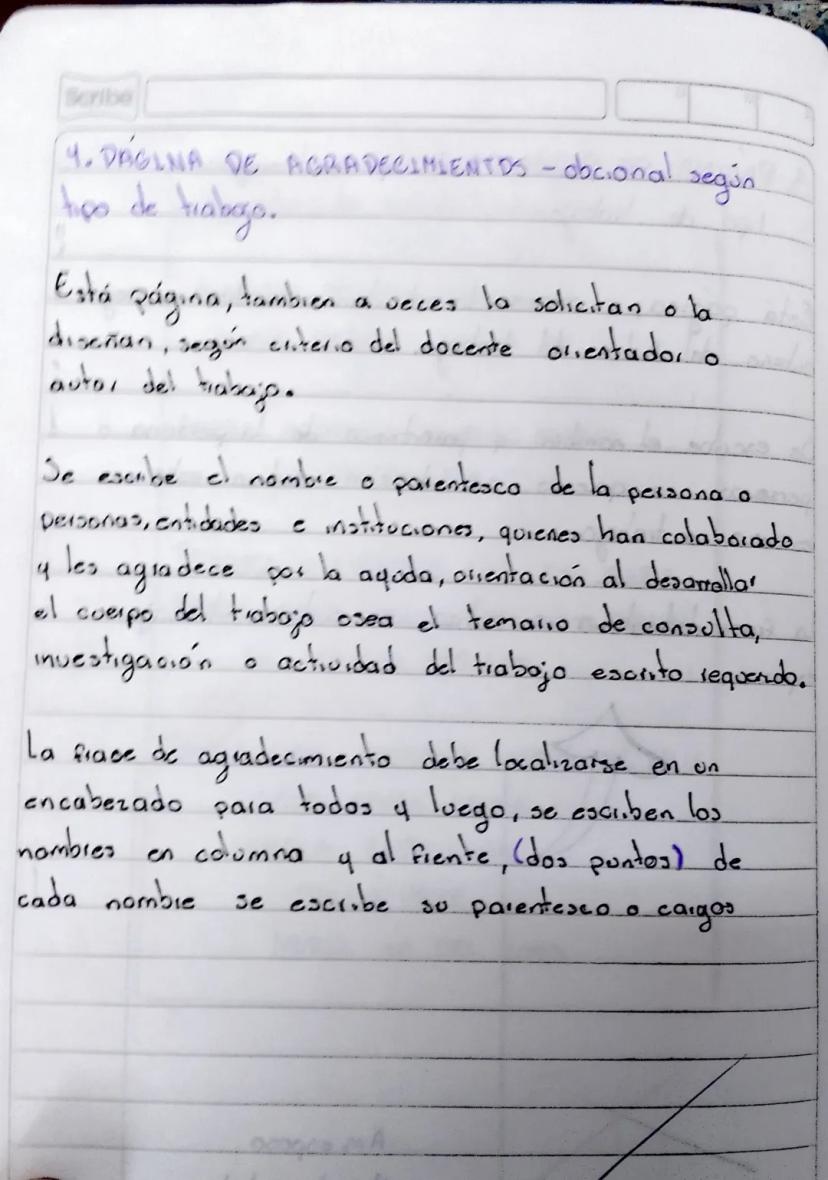 Scribe
4. PÁGINA DE AGRADECIMIENTOS - obcional según
tipo de trabajo.
Está página, tambien a veces la solicitan o la
diseñan, según criterio del docente orientador o
autor del trabajo.
Se escribe el nombre o parentesco de la persona o
personas, entidades e instituciones, quienes han colaborado
y les agradece por la ayuda, orientación al desarrollar
el cuerpo del trabajo osea el temario de consulta,
investigación o actividad del trabajo escrito requerido.
La frace de agradecimiento debe localizarse en un
encabezado para todos y luego, se escriben los
nombres en columna y al frente, (dos puntos) de
cada nombre se escribe su parentesco o cargos